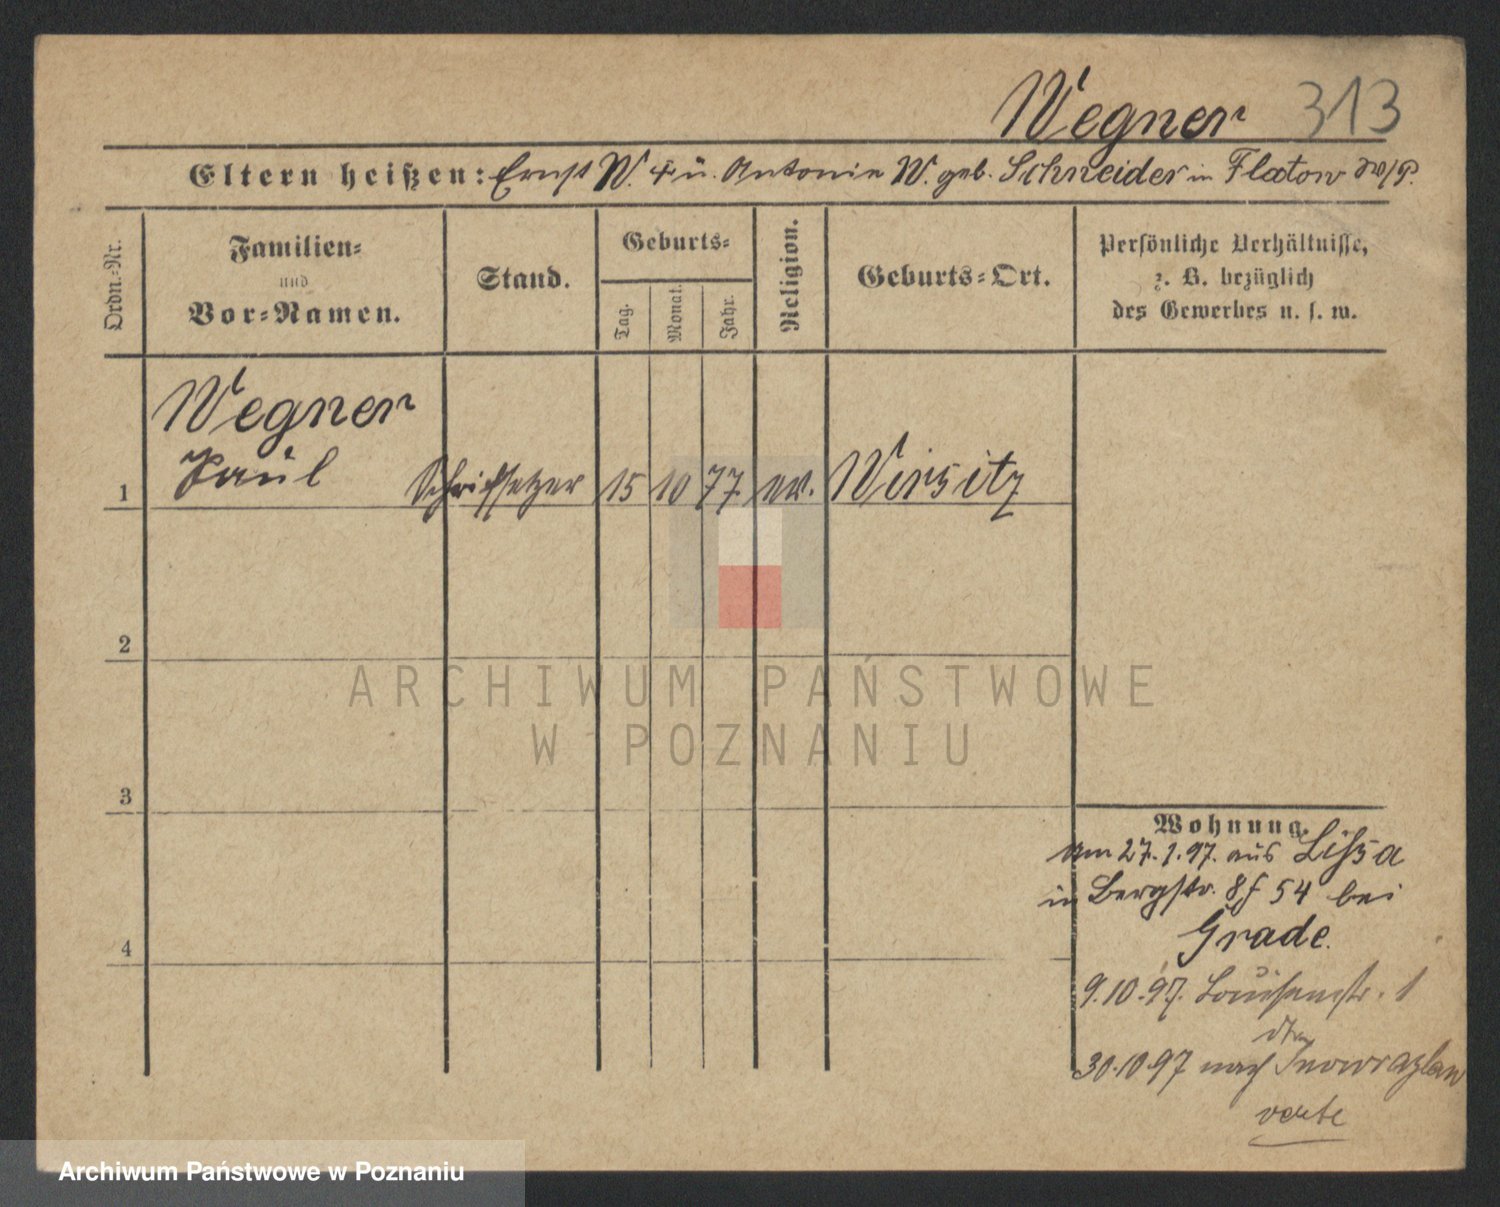 Wegner 313
Eltern heißen: Ernst W. † u. Antonie W. geb. Schneider in Flatow W/P.
Ordn.-Nr.
Familien-
und
Vor-Namen.
Stand.
Geburts-
Tag.
Monat.
Jahr.
Religion.
Geburts-Ort.
Persönliche Verhältnisse,
z. B. bezüglich
des Gewerbes u. s. w.
Wegner
1 Paul Schriftsetzer 15 10 77. ev. Wirsitz
2
ARCHIWUM PAŃSTWOWE
W POZNANIU
3
Wohnung.
am 27.1.97. aus Lissa
in Bergstr. 54 bei
4 Grade.
9.10.97. Louisenstr. 1
30.10.97 nach Inowrazlaw
verte
Archiwum Państwowe w Poznaniu